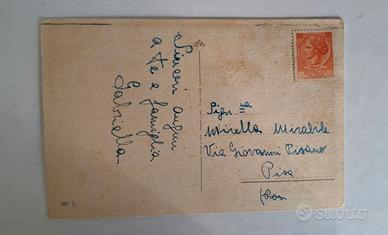 Sinceri auguri
a te e famiglia
Gabriella
Sign.na
Mirella Mirabile
Via Giovanni Pisano
Pisa
subito